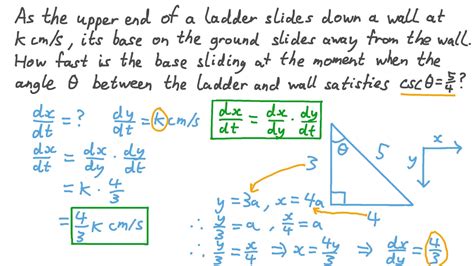 As the upper end of a ladder slides down a wall at
k cm/s, its base on the ground slides away from the wall.
How fast is the base sliding at the moment when the
angle θ between the ladder and wall satisfies cscθ=5/4?
dx/dt = ? dy/dt = k cm/s
dx/dt = dx/dy · dy/dt
dx/dt = dx/dy · dy/dt
= k · 4/3
= 4/3 k cm/s
θ
3
5
4
x
y
y = 3a, x = 4a
∴ y/3 = a, x/4 = a
∴ y/3 = x/4 ⇒ x = 4y/3 ⇒ dx/dy = 4/3